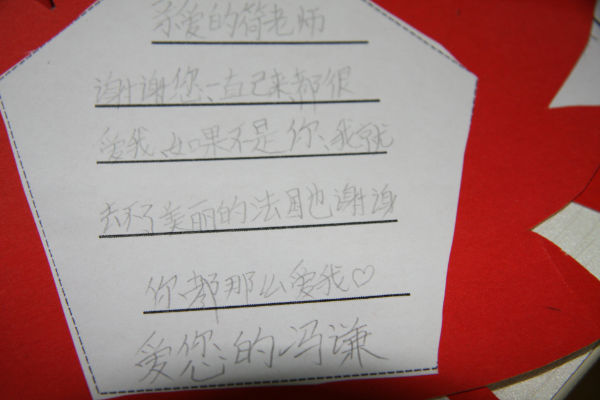 亲爱的符老师
谢谢您一直已来都很
爱我、如果不是你、我就
去不了美丽的法国也谢谢
你都那么爱我♡
爱您的冯谦